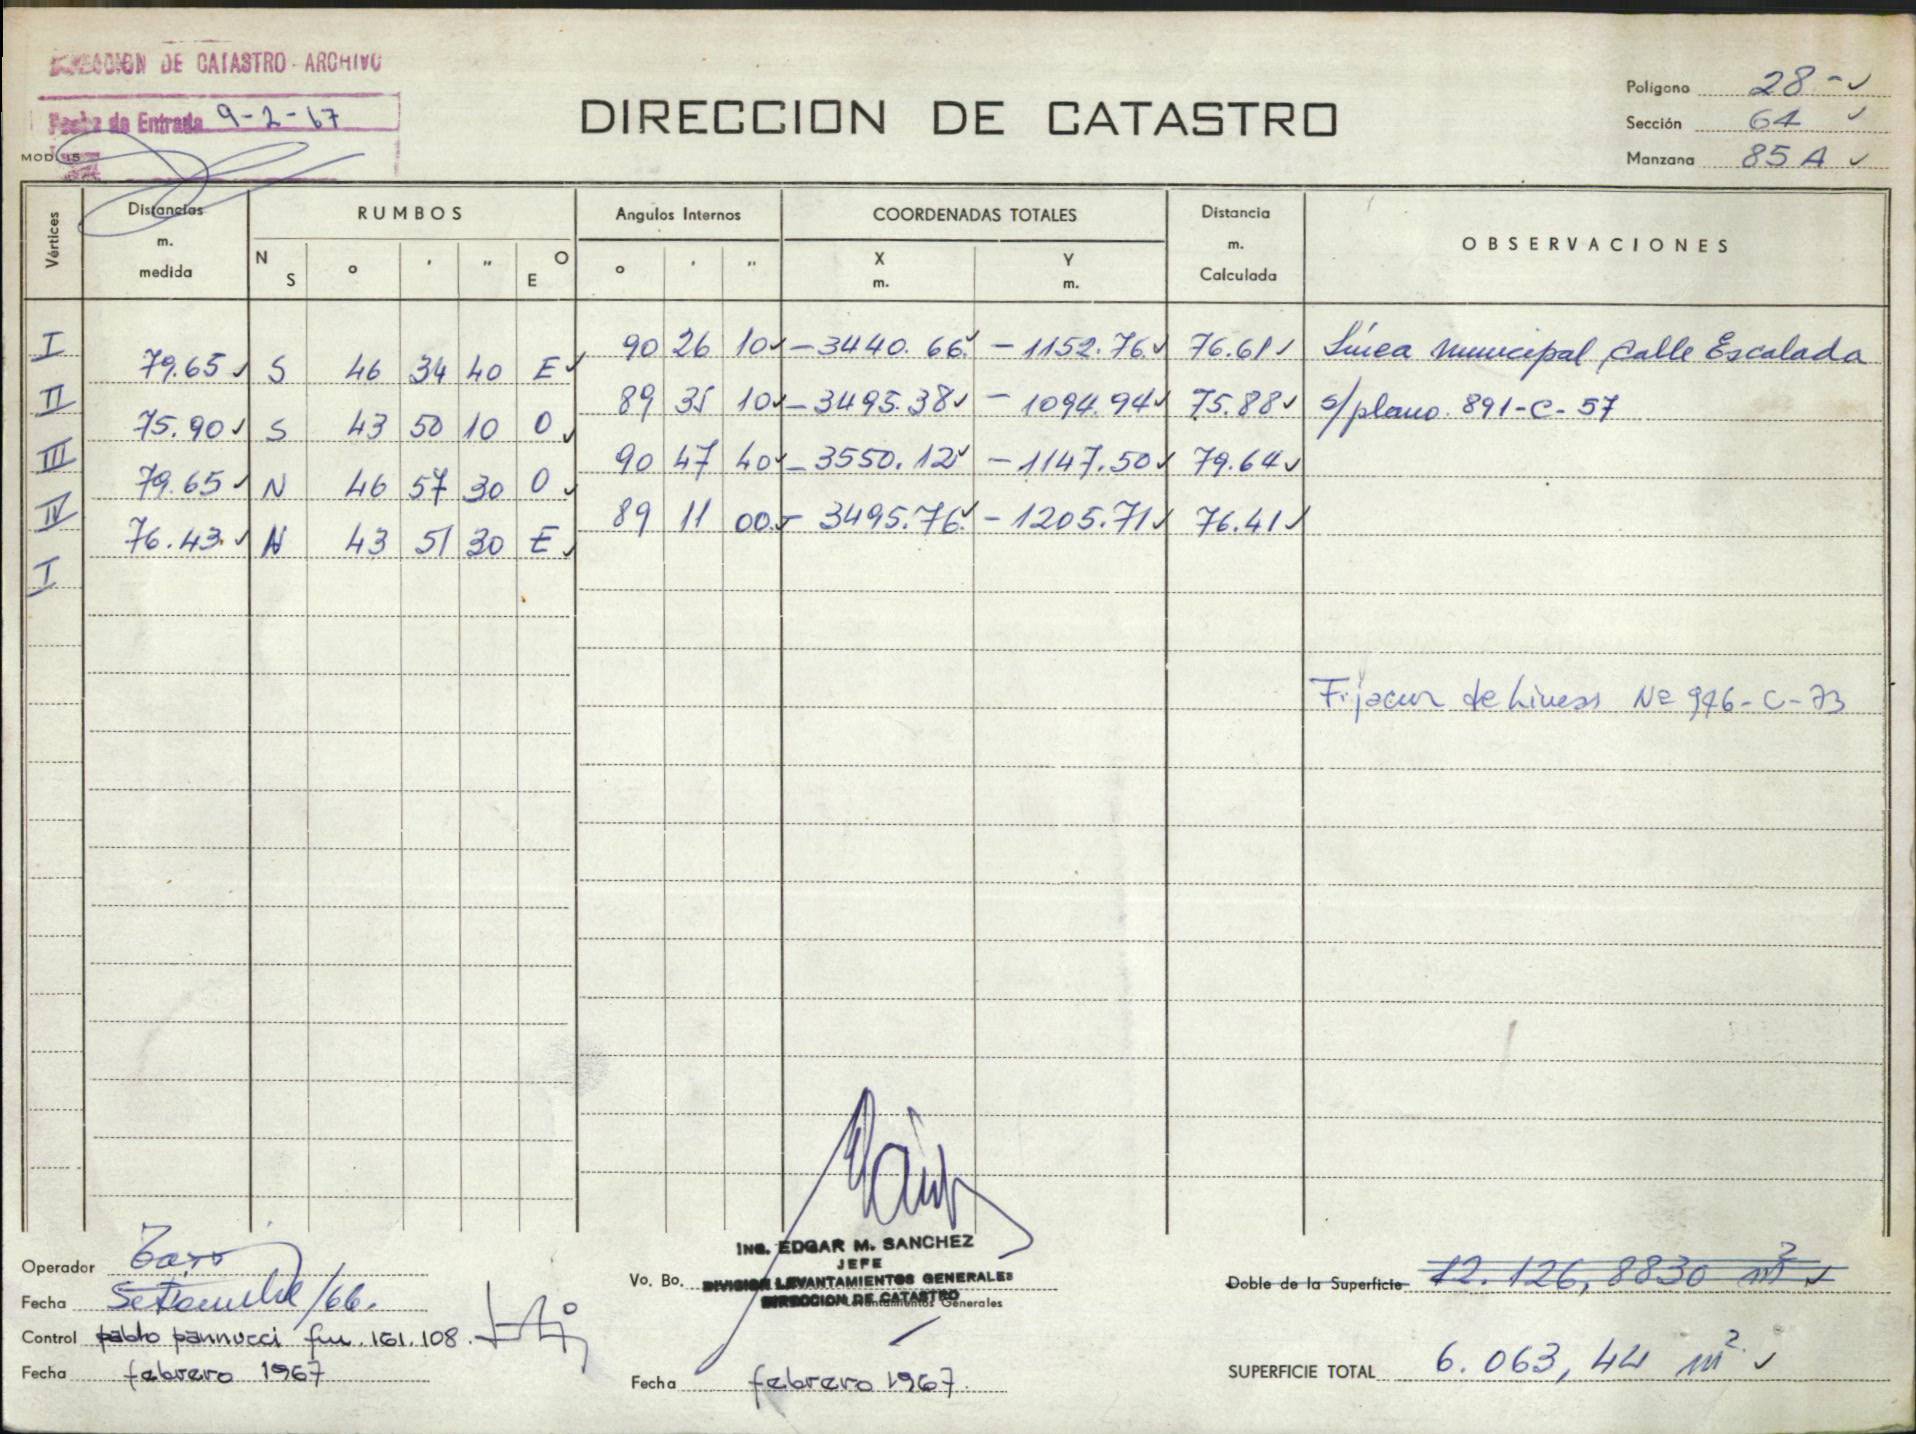 DIRECCION DE CATASTRO - ARCHIVO
Fecha de Entrada 9-2-67
MOD. 15
DIRECCION DE CATASTRO
Polígono 28-✓
Sección 64 ✓
Manzana 85 A ✓
Vértices
Distancias m. medida
RUMBOS
N S ° ' " O E
Angulos Internos
° ' "
COORDENADAS TOTALES
X m. Y m.
Distancia m. Calculada
OBSERVACIONES
I 90 26 10✓ -3440.66✓ -1152.76✓ 76.61✓ Línea Municipal Calle Escalada
79.65✓ S 46 34 40 E✓
II 89 35 10✓ -3495.38✓ -1094.94✓ 75.88✓ s/plano. 891-C-57
75.90✓ S 43 50 10 O✓
III 90 47 40✓ -3550.12✓ -1147.50✓ 79.64✓
79.65✓ N 46 57 30 O✓
IV 89 11 00✓ -3495.76✓ -1205.71✓ 76.41✓
76.43✓ N 43 51 30 E✓
I
Fijacion de Lineas Nº 946-C-73
Operador
Fecha Setiembre/66.
Control pablo pannucci fm.161.108.
Fecha febrero 1967
Vo. Bo.
ING. EDGAR M. SANCHEZ
JEFE
DIVISION LEVANTAMIENTOS GENERALES
DIRECCION DE CATASTRO
Levantamientos Generales
Fecha febrero 1967.
Doble de la Superficie 12.126,8830 m² ✓
SUPERFICIE TOTAL 6.063,44 m². ✓